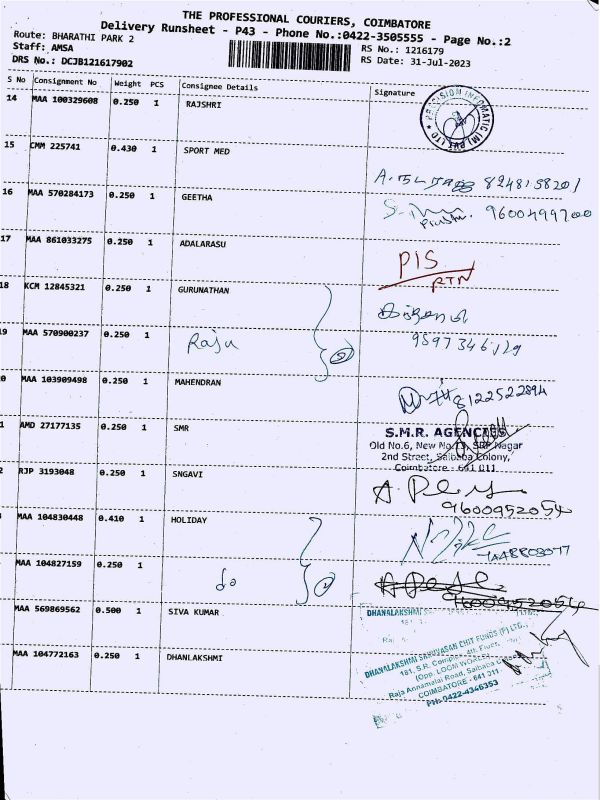 THE PROFESSIONAL COURIERS, COIMBATORE
Delivery Runsheet - P43 - Phone No.:0422-3505555 - Page No.:2
Route: BHARATHI PARK 2
RS No.: 1216179
Staff: AMSA
RS Date: 31-Jul-2023
DRS No.: DCJB121617902
S No Consignment No Weight PCS Consignee Details Signature
14 MAA 100329608 0.250 1 RAJSHRI
15 CMM 225741 0.430 1 SPORT MED
8248158201
16 MAA 570284173 0.250 1 GEETHA
9600499700
17 MAA 861033275 0.250 1 ADALARASU
PIS
RTN
18 KCM 12845321 0.250 1 GURUNATHAN
19 MAA 570900237 0.250 1 Raju
0 MAA 103909498 0.250 1 MAHENDRAN
8122522894
1 AMD 27177135 0.250 1 SMR
S.M.R. AGENCIES
Old No.6, New No. SRP Nagar
2nd Street, Saibaba Colony,
Coimbatore - 641 011
2 RJP 3193048 0.250 1 SNGAVI
9600952054
MAA 104830448 0.410 1 HOLIDAY
MAA 104827159 0.250 1 do
9600952054
MAA 569869562 0.500 1 SIVA KUMAR
DHANALAKSHMI
MAA 104772163 0.250 1 DHANLAKSHMI
DHANALAKSHMI CHIT FUNDS (P) LTD.,
181, S.R. Floor,
(Opp. LOOM WORLD)
Raja Annamalai Road, Saibaba
COIMBATORE - 641 011
PH: 0422-4346353